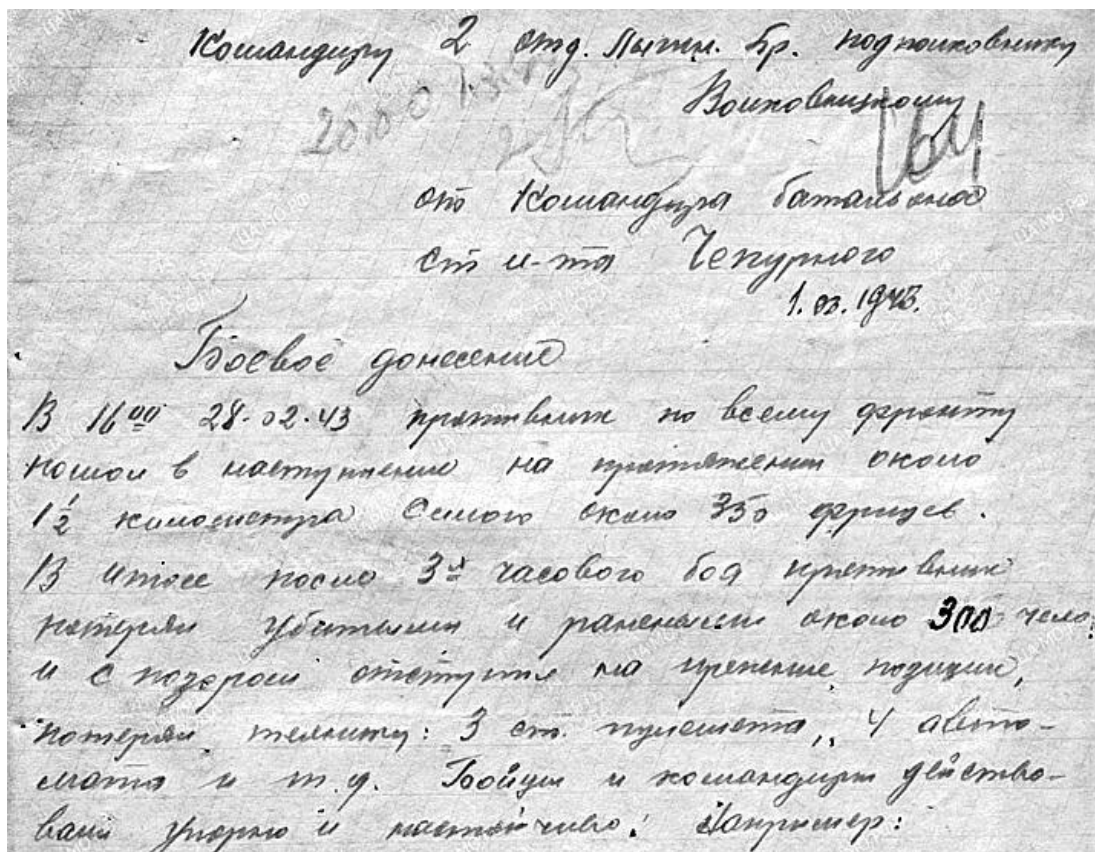 Командиру 2 отд. Лыжн. бр. подполковнику
Войковницкому
20.00
164
от Командира батальона
Ст л-та Чепурного
1.03.1943.
Боевое донесение
В 16 00 28.02.43 противник по всему фронту
пошол в наступление на протяжении около
1 1/2 километра Силою около 350 фрицев.
В итоге после 3х часового боя противник
потерял убитыми и ранеными около 300 чело.
и с позором отступил на прежние позиции,
потеряв технику: 3 ст. пулемета, 4 авто-
мата и т.д. Бойцы и командиры действо-
вали упорно и настойчиво. Например: